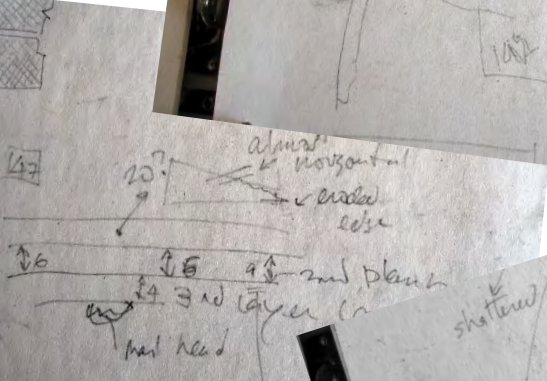 147
147
almost
horizontal
20°
eroded
edge
6 5 9 2nd plank
4 3rd layer
nail head
shattered